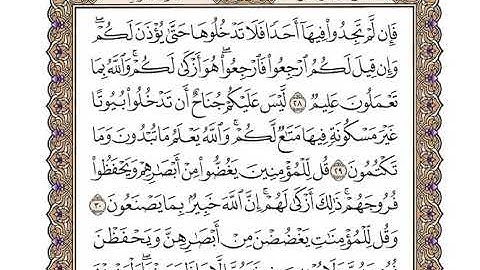 فَإِن لَّمْ تَجِدُوا۟ فِيهَآ أَحَدًا فَلَا تَدْخُلُوهَا حَتَّىٰ يُؤْذَنَ لَكُمْ ۖ
وَإِن قِيلَ لَكُمُ ٱرْجِعُوا۟ فَٱرْجِعُوا۟ ۖ هُوَ أَزْكَىٰ لَكُمْ ۚ وَٱللَّهُ بِمَا
تَعْمَلُونَ عَلِيمٌ ٢٨ لَّيْسَ عَلَيْكُمْ جُنَاحٌ أَن تَدْخُلُوا۟ بُيُوتًا
غَيْرَ مَسْكُونَةٍ فِيهَا مَتَـٰعٌ لَّكُمْ ۚ وَٱللَّهُ يَعْلَمُ مَا تُبْدُونَ وَمَا
تَكْتُمُونَ ٢٩ قُل لِّلْمُؤْمِنِينَ يَغُضُّوا۟ مِنْ أَبْصَـٰرِهِمْ وَيَحْفَظُوا۟
فُرُوجَهُمْ ۚ ذَٰلِكَ أَزْكَىٰ لَهُمْ ۗ إِنَّ ٱللَّهَ خَبِيرٌۢ بِمَا يَصْنَعُونَ ٣٠
وَقُل لِّلْمُؤْمِنَـٰتِ يَغْضُضْنَ مِنْ أَبْصَـٰرِهِنَّ وَيَحْفَظْنَ